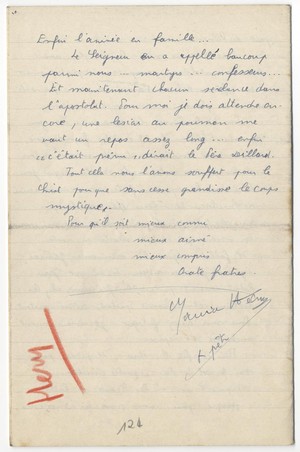 Enfin l'arrivée en famille...
Le Seigneur en a appelé beaucoup
parmi nous - martyrs... confesseurs...
Et maintenant chacun se relance dans
l'apostolat. Pour moi je dois attendre en-
core, une lésion au poumon me
vaut un repos assez long... enfin
"c'était prévu", dirait le Père
Tout cela nous l'avons souffert pour le
Christ pour que sans cesse grandisse le corps
mystique.
Pour qu'il soit mieux connu
mieux aimé
mieux compris
Orate fratres.
Henry
124